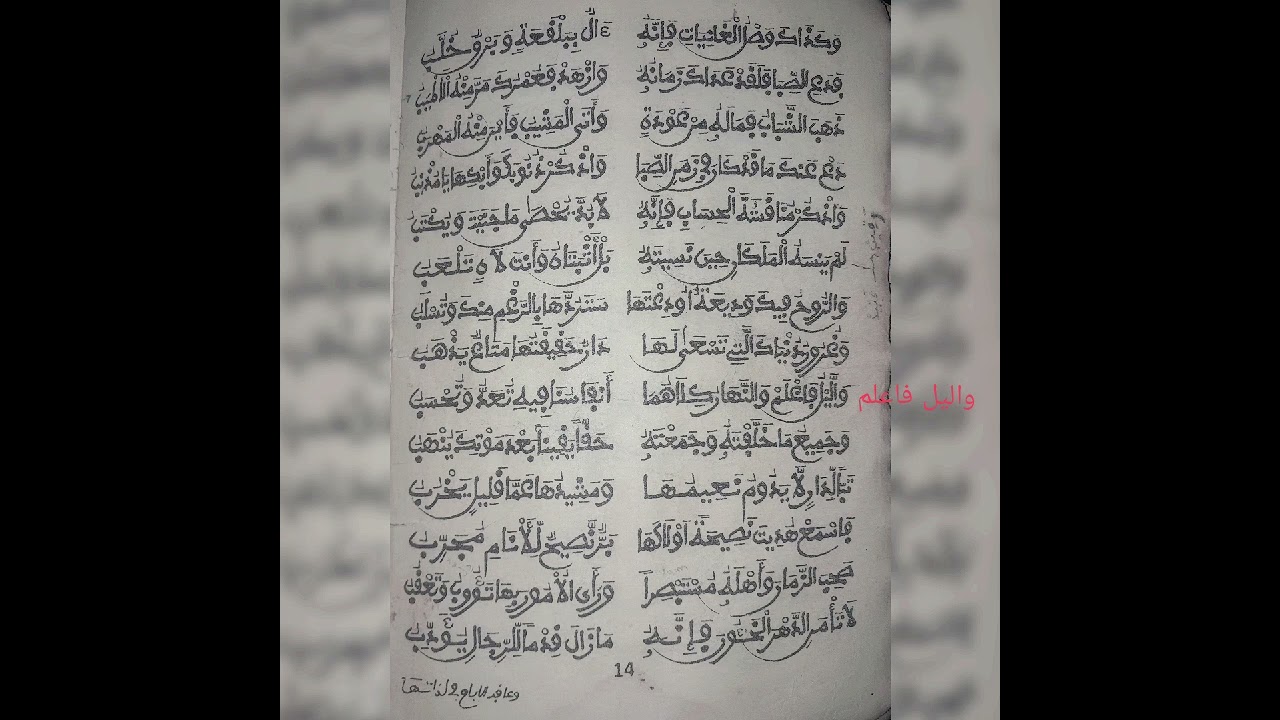 وَكَذَاكَ وَصْلُ الْغَانِيَاتِ فَإِنَّهُ ءَالٌ بِبَلْقَعَةٍ وَبَرْقٌ خُلَّبُ
فَدَعِ الصِّبَا فَلَقَدْ عَدَاكَ زَمَانُهُ وَازْهَدْ فَعُمْرُكَ مَرَّ مِنْهُ الْأَطْيَبُ
ذَهَبَ الشَّبَابُ فَمَا لَهُ مِنْ عَوْدَةٍ وَأَتَى الْمَشِيبُ فَأَيْنَ مِنْهُ الْمَهْرَبُ
دَعْ عَنْكَ مَا قَدْ كَانَ فِي زَمَنِ الصِّبَا وَاذْكُرْ ذُنُوبَكَ وَابْكِهَا يَا مُذْنِبُ
وَاذْكُرْ مُنَاقَشَةَ الْحِسَابِ فَإِنَّهُ لَابُدَّ يُحْصَى مَا جَنَيْتَ وَيُكْتَبُ
لَمْ يَنْسَهُ الْمَلَكَانِ حِينَ نَسِيتَهُ بَلْ أَثْبَتَاهُ وَأَنْتَ لَاهٍ تَلْعَبُ
وَالرُّوحُ فِيكَ وَدِيعَةٌ أُودِعْتَهَا سَتَرُدُّهَا بِالرَّغْمِ مِنْكَ وَتُسْلَبُ
وَغُرُورُ دُنْيَاكَ الَّتِي تَسْعَى لَهَا دَارٌ حَقِيقَتُهَا مَتَاعٌ يَذْهَبُ
وَالَّيْلُ فَاعْلَمْ وَالنَّهَارُ كِلَاهُمَا أَنْفَاسُنَا فِيهِ تُعَدُّ وَتُحْسَبُ
واليل فاعلم
وَجَمِيعُ مَا خَلَّفْتَهُ وَجَمَعْتَهُ حَقًّا يَقِينًا بَعْدَ مَوْتِكَ يُنْهَبُ
تَبًّا لِدَارٍ لَّا يَدُومُ نَعِيمُهَا وَمَشِيدُهَا عَمَّا قَلِيلٍ يَخْرَبُ
فَاسْمَعْ هُدِيتَ نَصِيحَةً أَوْلَاكَهَا بَرٌّ نَّصِيحٌ لِّلْأَنَامِ مُجَرِّبُ
صَحِبَ الزَّمَانَ وَأَهْلَهُ مُسْتَبْصِرًا وَرَأَى الْأُمُورَ بِمَا تَئُوبُ وَتَعْقُبُ
لَا تَأْمَنِ الدَّهْرَ الْخَئُونَ فَإِنَّهُ مَا زَالَ قِدْمًا لِّلرِّجَالِ يُؤَدِّبُ
14